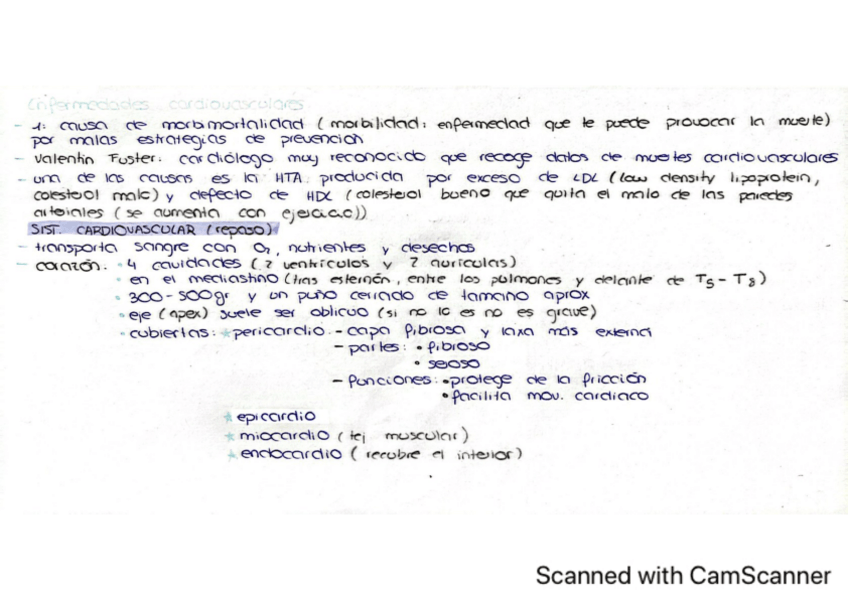 Enfermedades cardiovasculares
- 1ª causa de morbimortalidad (morbilidad: enfermedad que te puede provocar la muerte)
por malas estrategias de prevención
- Valentín Fuster: cardiólogo muy reconocido que recoge datos de muertes cardiovasculares
- una de las causas es la HTA producida por exceso de LDL (low density lipoprotein,
colesterol malo) y defecto de HDL (colesterol bueno que quita el malo de las paredes
arteriales (se aumenta con ejercicio))
SIST. CARDIOVASCULAR (repaso)
- transporta sangre con O2, nutrientes y desechos
- corazón: • 4 cavidades (2 ventrículos y 2 aurículas)
• en el mediastino (tras esternón, entre los pulmones y delante de T5 - T8)
• 300-500gr y un puño cerrado de tamaño aprox
• eje (apex) suele ser oblicuo (si no lo es no es grave)
• cubiertas: * pericardio - capa fibrosa y laxa más externa
- partes: • fibroso
• seroso
- funciones: • protege de la fricción
• facilita mov. cardiaco
* epicardio
* miocardio (tej muscular)
* endocardio (recubre el interior)
Scanned with CamScanner